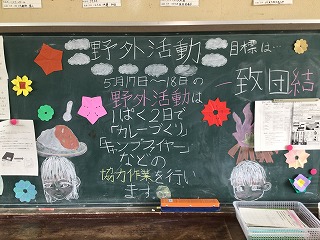 野外活動
目標は…
一致団結
5月17日〜18日の
野外活動は
1ぱく2日で
「カレーづくり」
「キャンプファイヤー」
などの
協力作業を行い
ます。